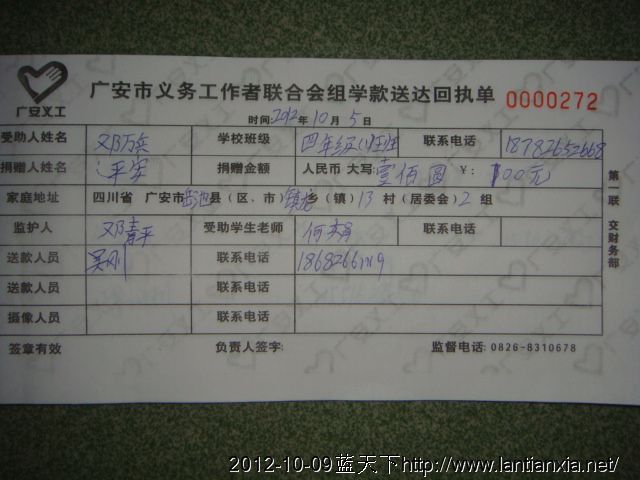 广安义工
广安市义务工作者联合会组学款送达回执单 0000272
时间: 2012年 10 月 5 日
受助人姓名 学校班级 四年级 联系电话 18782652668
捐赠人姓名 平安 捐赠金额 人民币 大写: 壹佰圆 ￥: 100元
家庭地址 四川省 广安市 岳池 县(区、市) 镇龙 乡(镇) 13 村(居委会) 2 组
监护人 邓青平 受助学生老师 联系电话
送款人员 吴刚 联系电话
送款人员 联系电话
摄像人员 联系电话
签章有效 负责人签字: 监督电话: 0826-8310678
第一联 交财务部
2012-10-09蓝天下http://www.lantianxia.net/